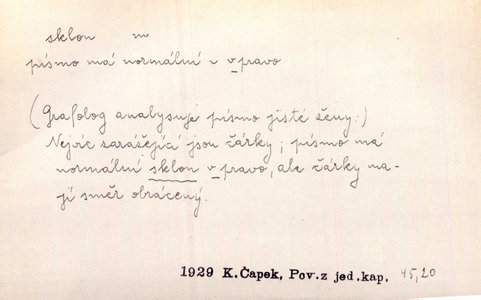 sklon m
písmo má normální v pravo
(Grafolog analysuje písmo jisté ženy:)
Nejvíc zarážející jsou čárky; písmo má
normální sklon v pravo, ale čárky ma-
jí směr obrácený.
1929 K.Čapek, Pov.z jed.kap. 45,20